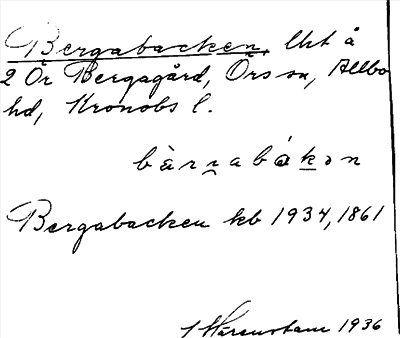 Bergabacken, lht å
2 Ör Bergagård, Örs sn, Allbo
hd, Kronobs l.
bàrɲabákən
Bergabacken kb 1934, 1861
1936